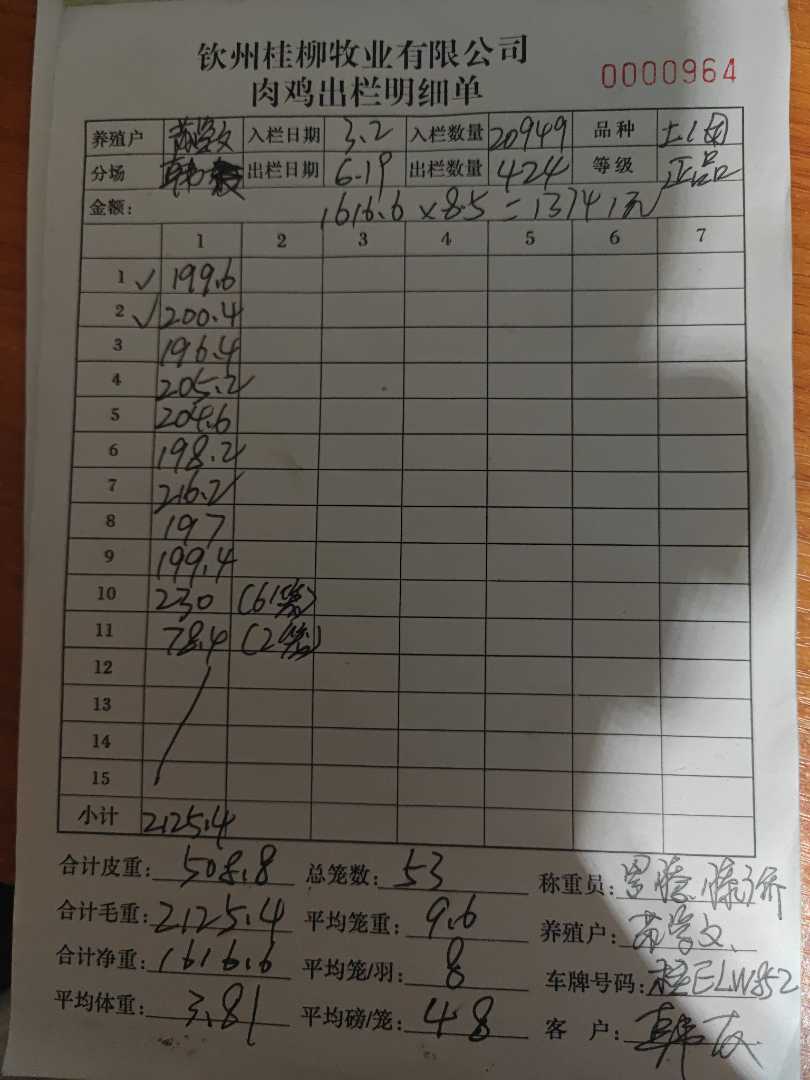 钦州桂柳牧业有限公司
肉鸡出栏明细单 0000964
养殖户 苏学文 入栏日期 3.2 入栏数量 20949 品种
分场 韩 出栏日期 6.19 出栏数量 424 等级 正品
金额: 1616.6×8.5=13741元
1 2 3 4 5 6 7
1 ✓ 199.6
2 ✓ 200.4
3 196.4
4 205.2
5 204.6
6 198.2
7 216.2
8 197
9 199.4
10 230 (6笼)
11 78.4 (2笼)
12
13
14
15
小计 2125.4
合计皮重: 508.8 总笼数: 53 称重员:
合计毛重: 2125.4 平均笼重: 9.6 养殖户: 苏学文
合计净重: 1616.6 平均笼/羽: 8 车牌号码: 桂ELW852
平均体重: 3.81 平均磅/笼: 48 客户: 韩友